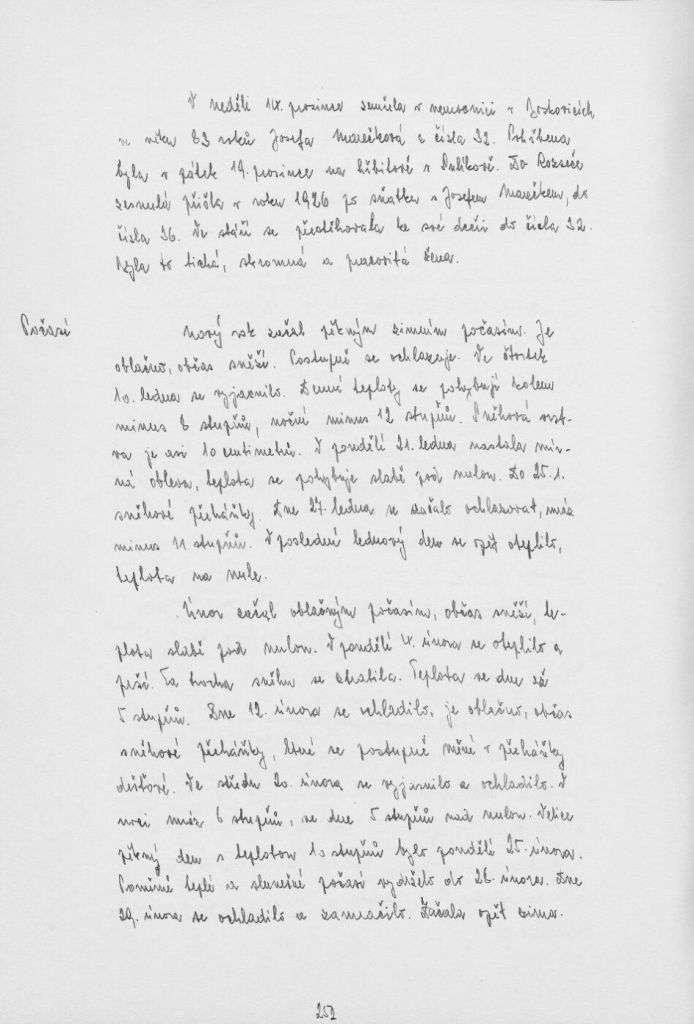 V neděli 14. prosince zemřela v nemocnici v Boskovicích
ve věku 83 roků Josefa Marečková z čísla 32. Pohřbena
byla v pátek 19. prosince na hřbitově v
zesnulá přišla v roku 1926 po sňatku s Josefem Marečkem, do
čísla 36. Ve stáří se přestěhovala ke své dceři do čísla 32.
Byla to tichá, skromná a pracovitá žena.
Počasí
Nový rok začal pěkným zimním počasím. Je
oblačno, občas sněží. Postupně se ochlazuje. Ve čtvrtek
10. ledna se vyjasnilo. Denní teploty se pohybují kolem
minus 8 stupňů, noční minus 12 stupňů. Sněhová vrst-
va je asi 10 centimetrů. V pondělí 21. ledna nastala mír-
ná obleva, teplota se pohybuje slabě pod nulou. Do 25.1.
sněhové přeháňky. Dne 27. ledna se začalo ochlazovat, mráz
minus 11 stupňů. V poslední lednový den se opět oteplilo,
teplota na nule.
Únor začal oblačným počasím, občas sněží, te-
plota slabě pod nulou. V pondělí 4. února se oteplilo a
prší. Ta trocha sněhu se ztratila. Teplota ve dne až
5 stupňů. Dne 12. února se ochladilo, je oblačno, občas
sněhové přeháňky, které se postupně mění v přeháňky
dešťové. Ve středu 20. února se vyjasnilo a ochladilo. V
noci mráz 6 stupňů, ve dne 5 stupňů nad nulou. Velice
pěkný den s teplotou 10 stupňů bylo pondělí 25. února.
Poměrně teplé a slunečné počasí vydrželo do 28. února. Dne
29. února se ochladilo a zamračilo. Začala opět zima.
252